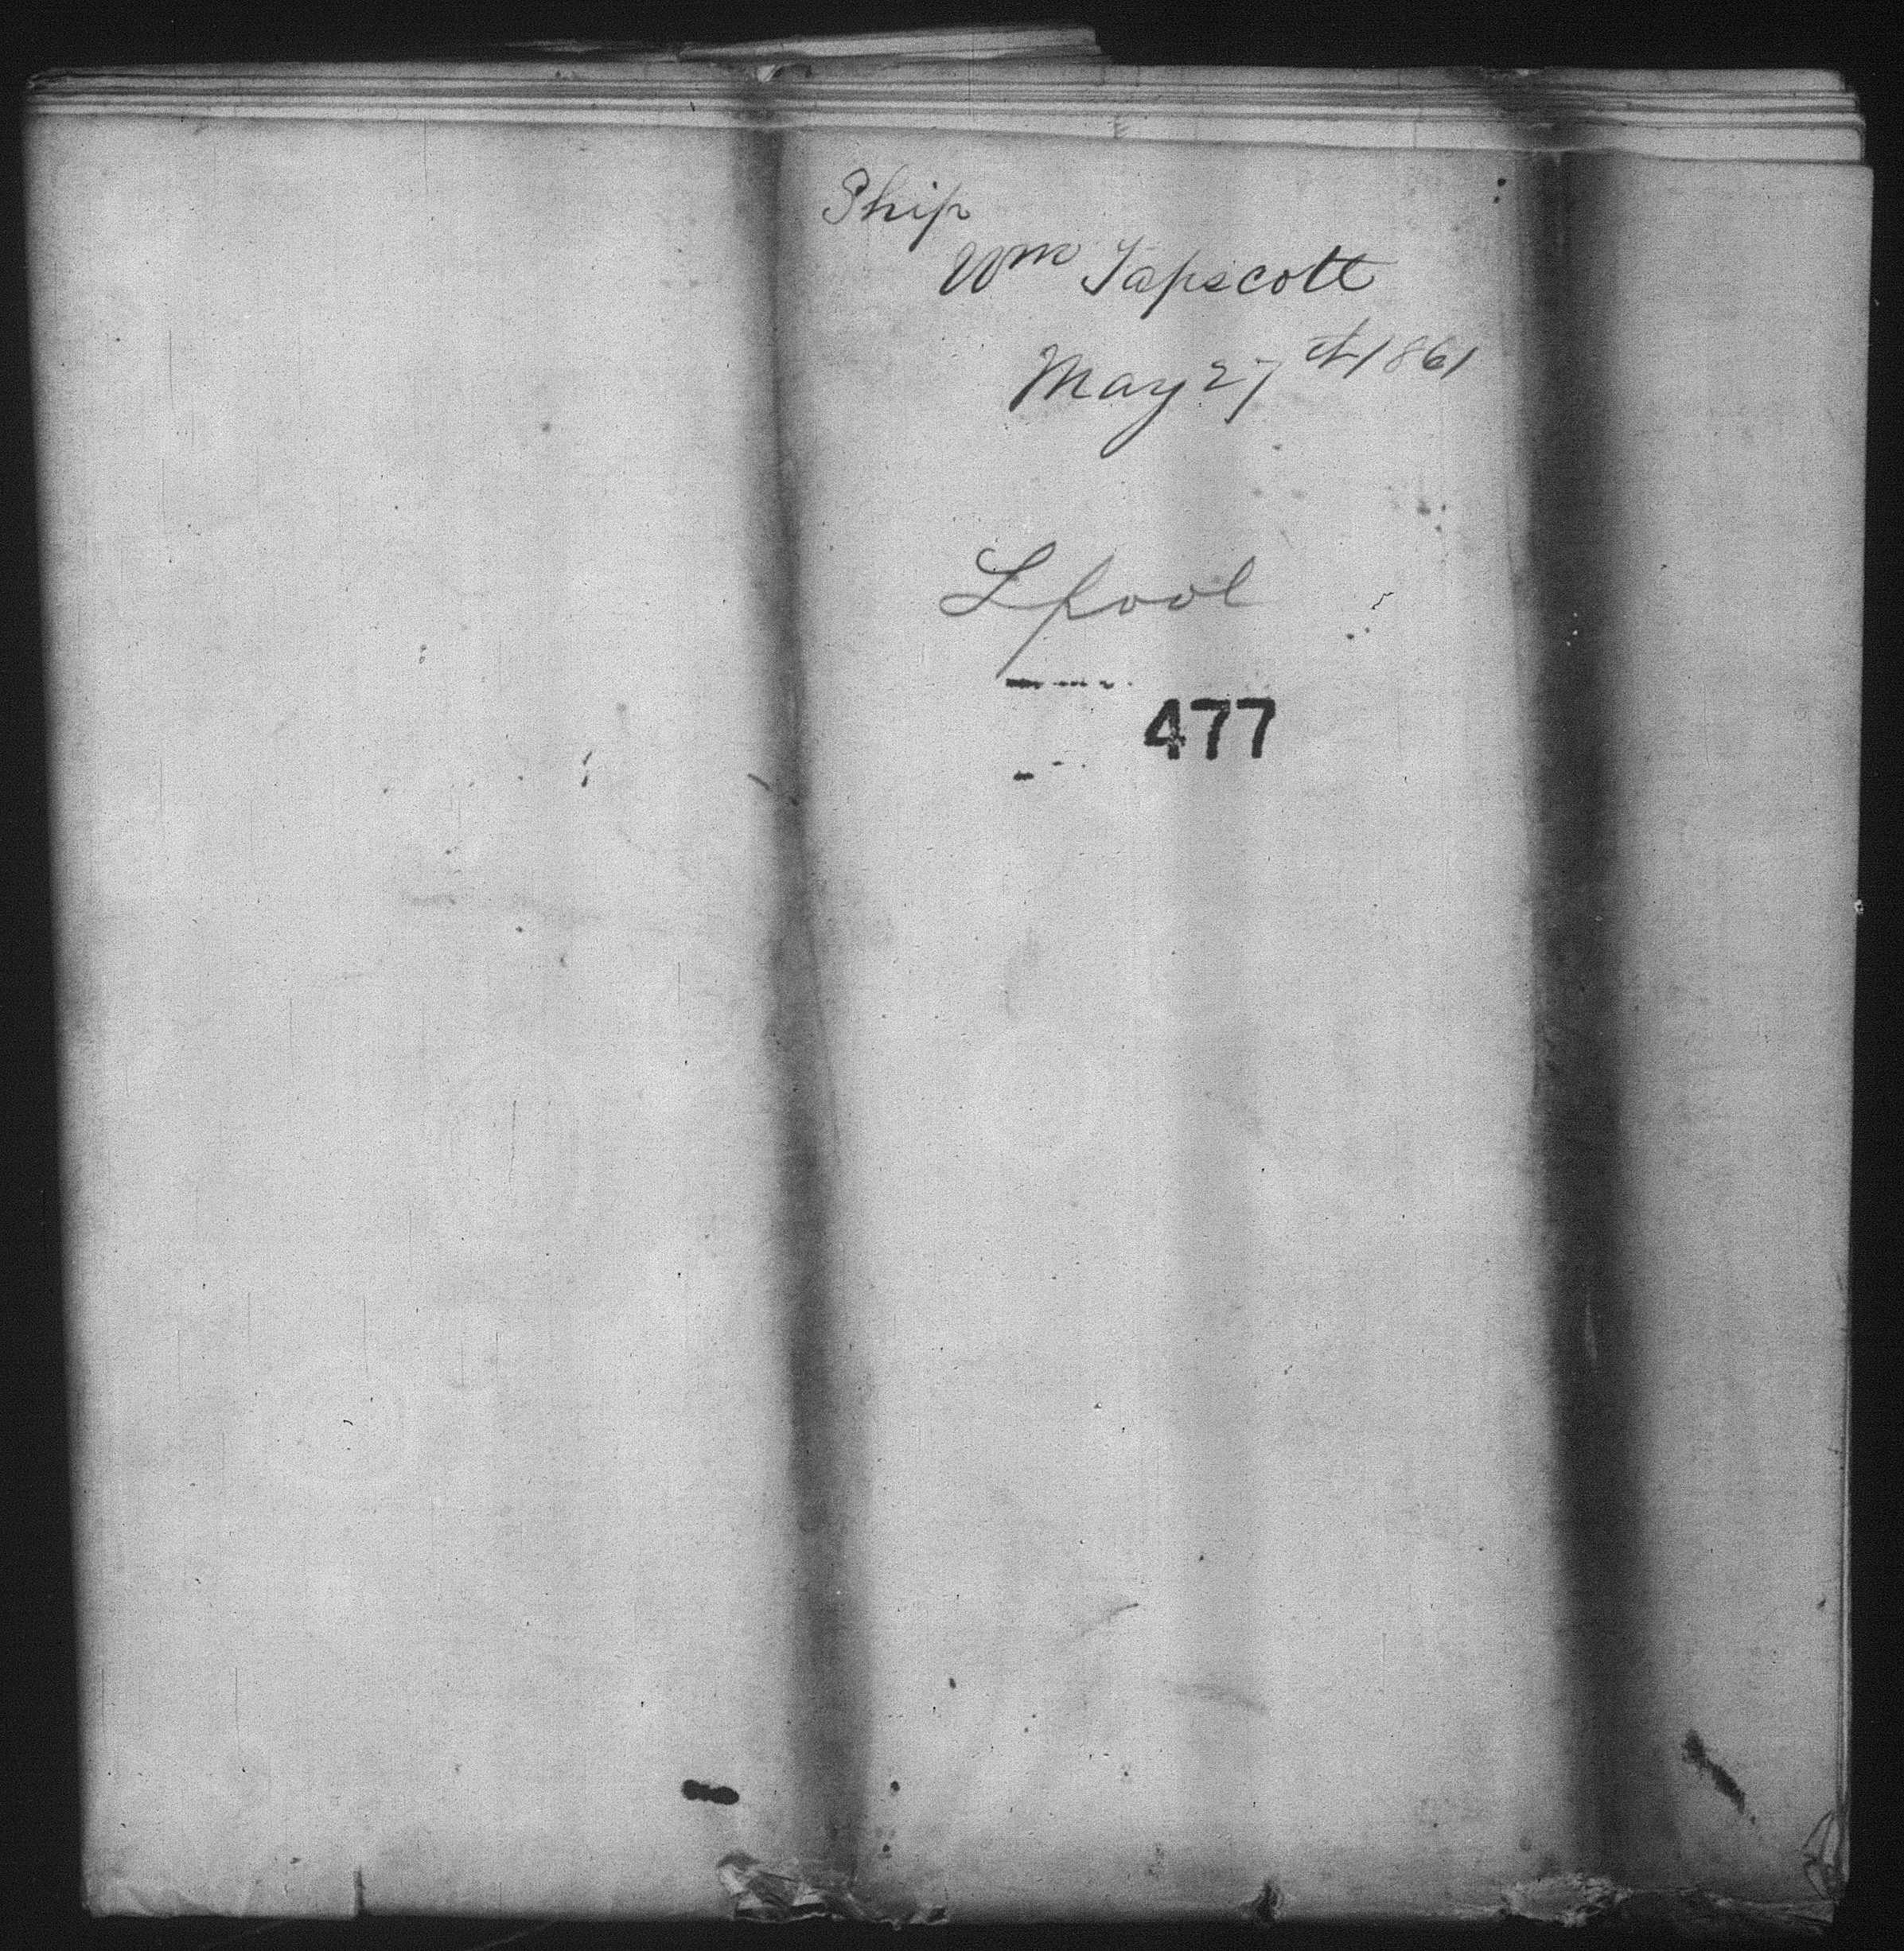 Ship
Wm Tapscott
May 27th 1861
Lpool
477